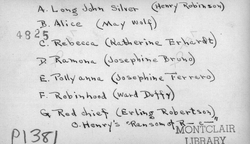 A. Long John Silver (Henry Robinson)
B. Alice (May Wolf)
4825
C. Rebecca (Katherine Erhardt)
D. Ramona (Josephine Bruno)
E. Pollyanna (Josephine Ferraro)
F. Robinhood (Ward Duffy)
G. Red Chief (Erling Robertson)
O. Henry's "Ransom of R
P1381
MONTCLAIR
LIBRARY